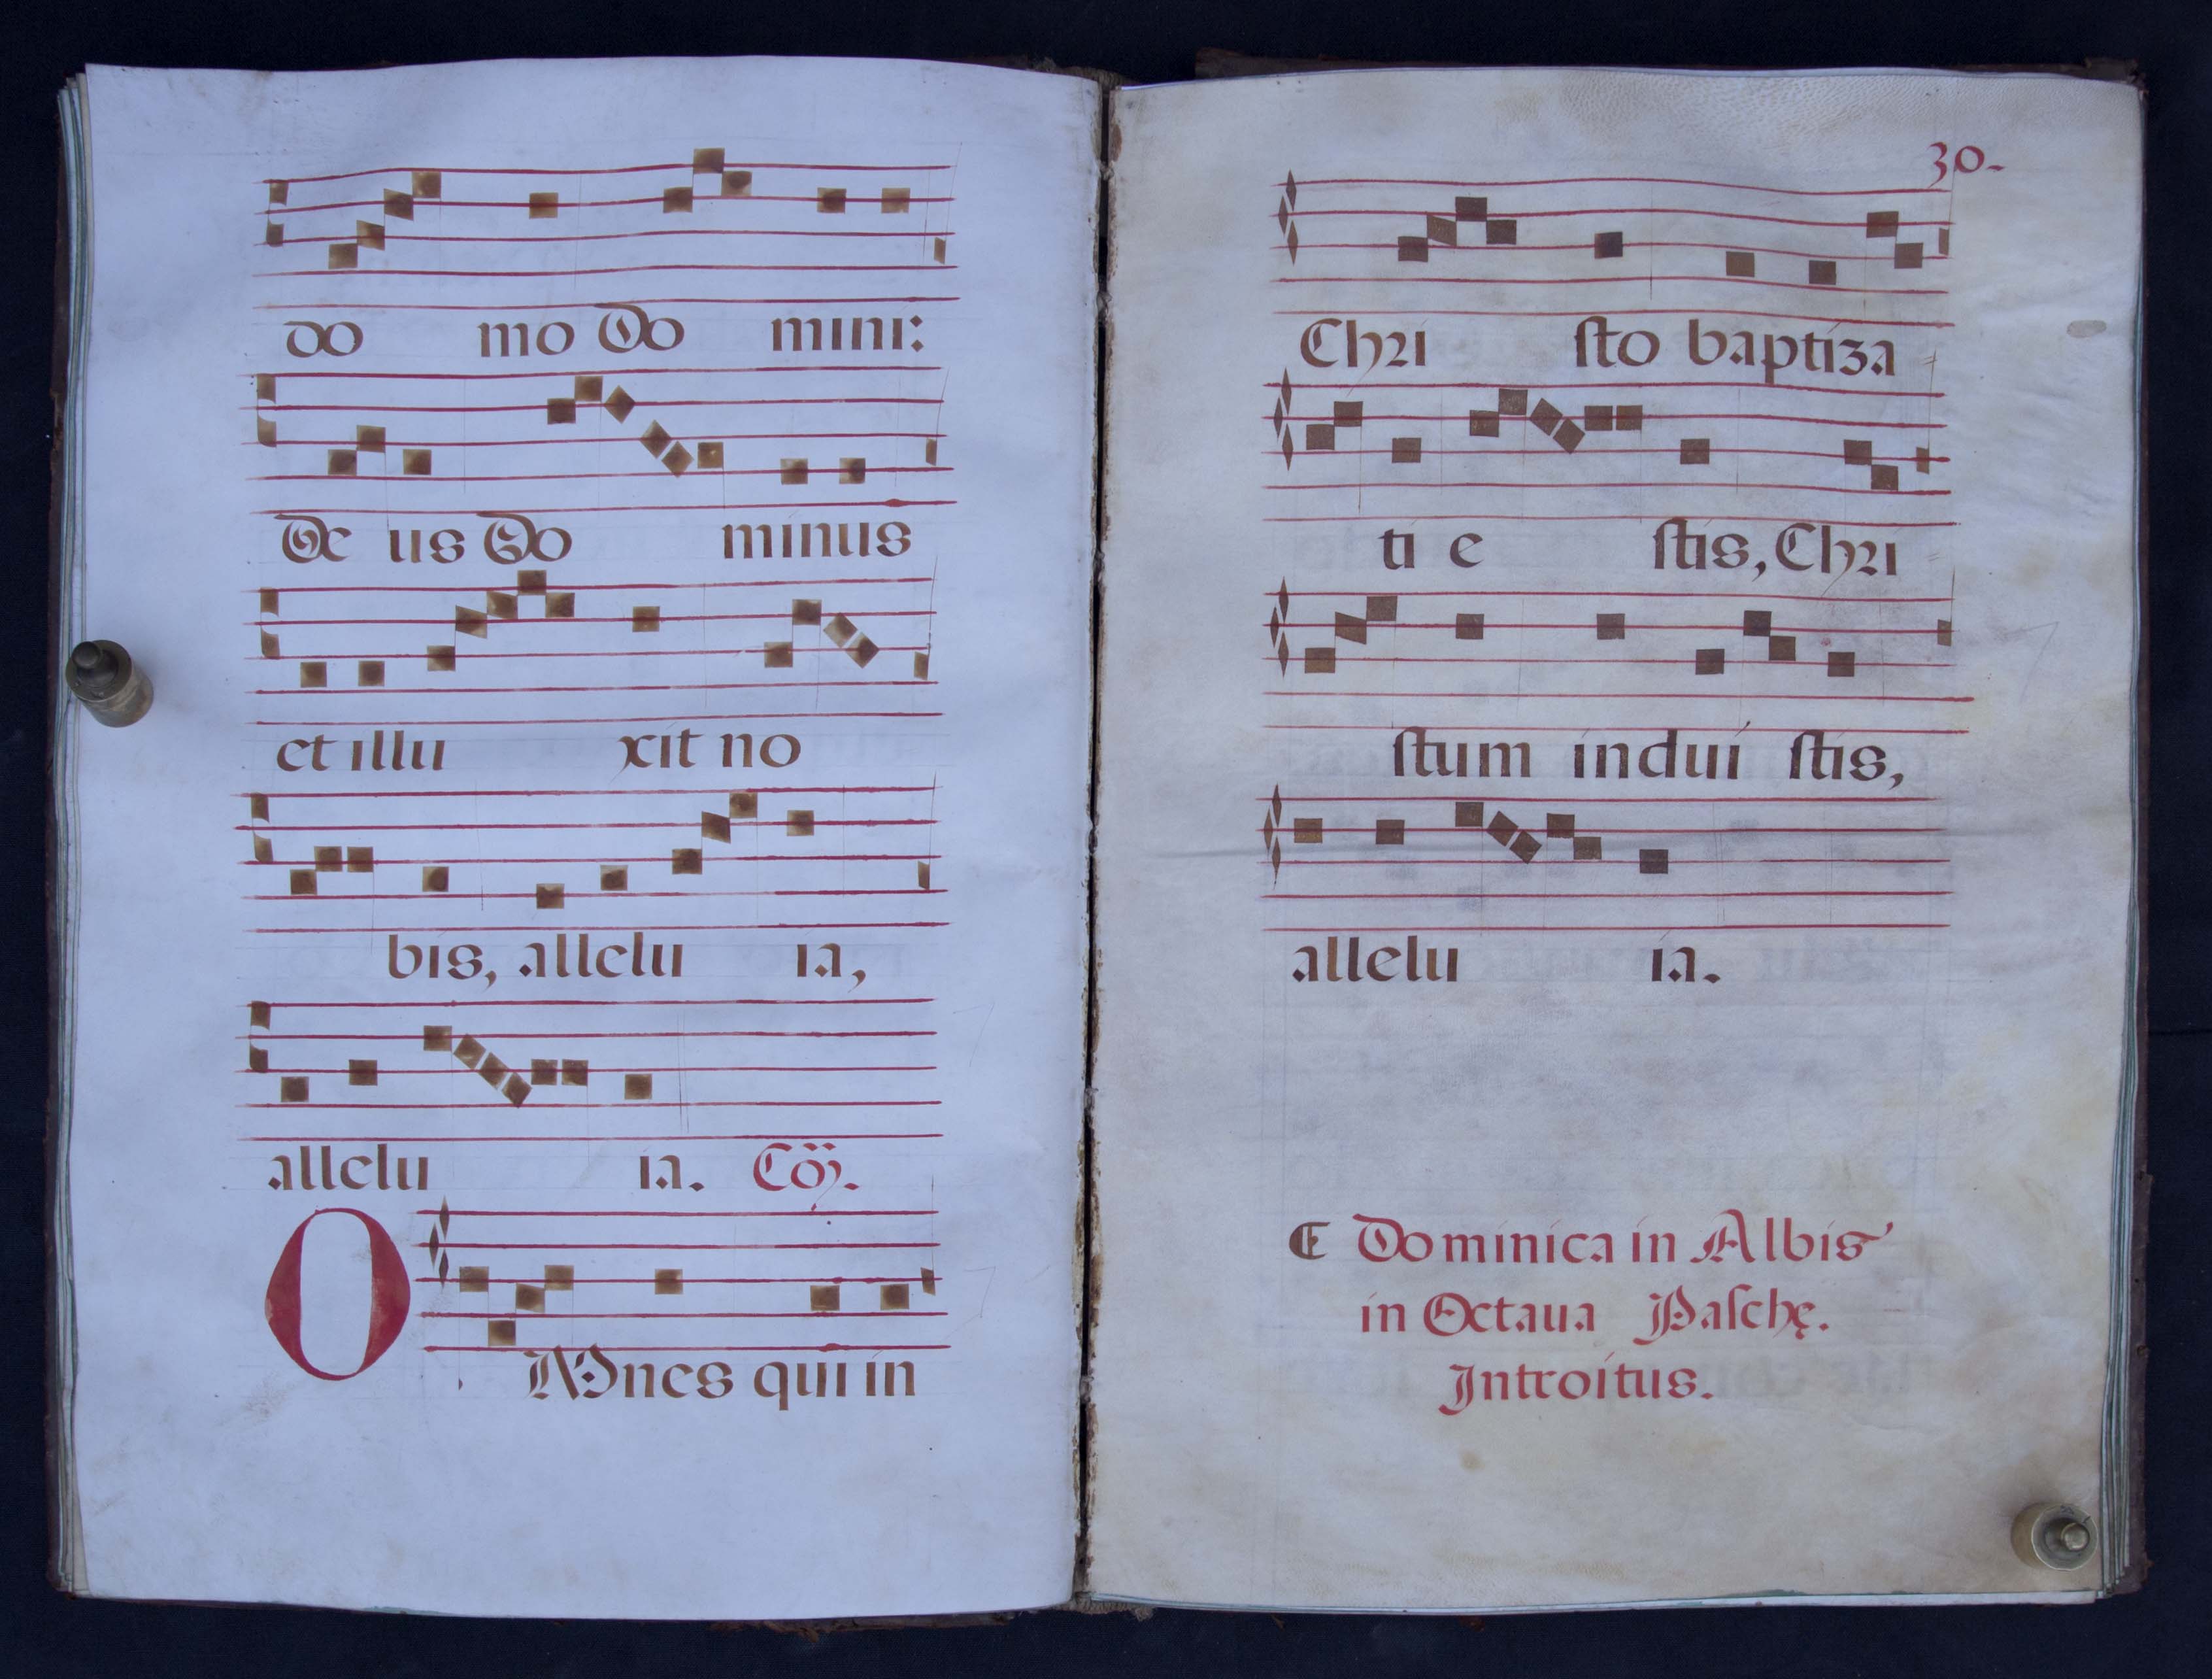 do mo Do mini:
De us Do minus
et illu xit no
bis, allelu ia,
allelu ia. Cõ.
OMnes qui in
30.
Chri sto baptiza
ti e stis, Chri
stum indui stis,
allelu ia.
Dominica in Albis
in Octaua Paschę.
Introitus.